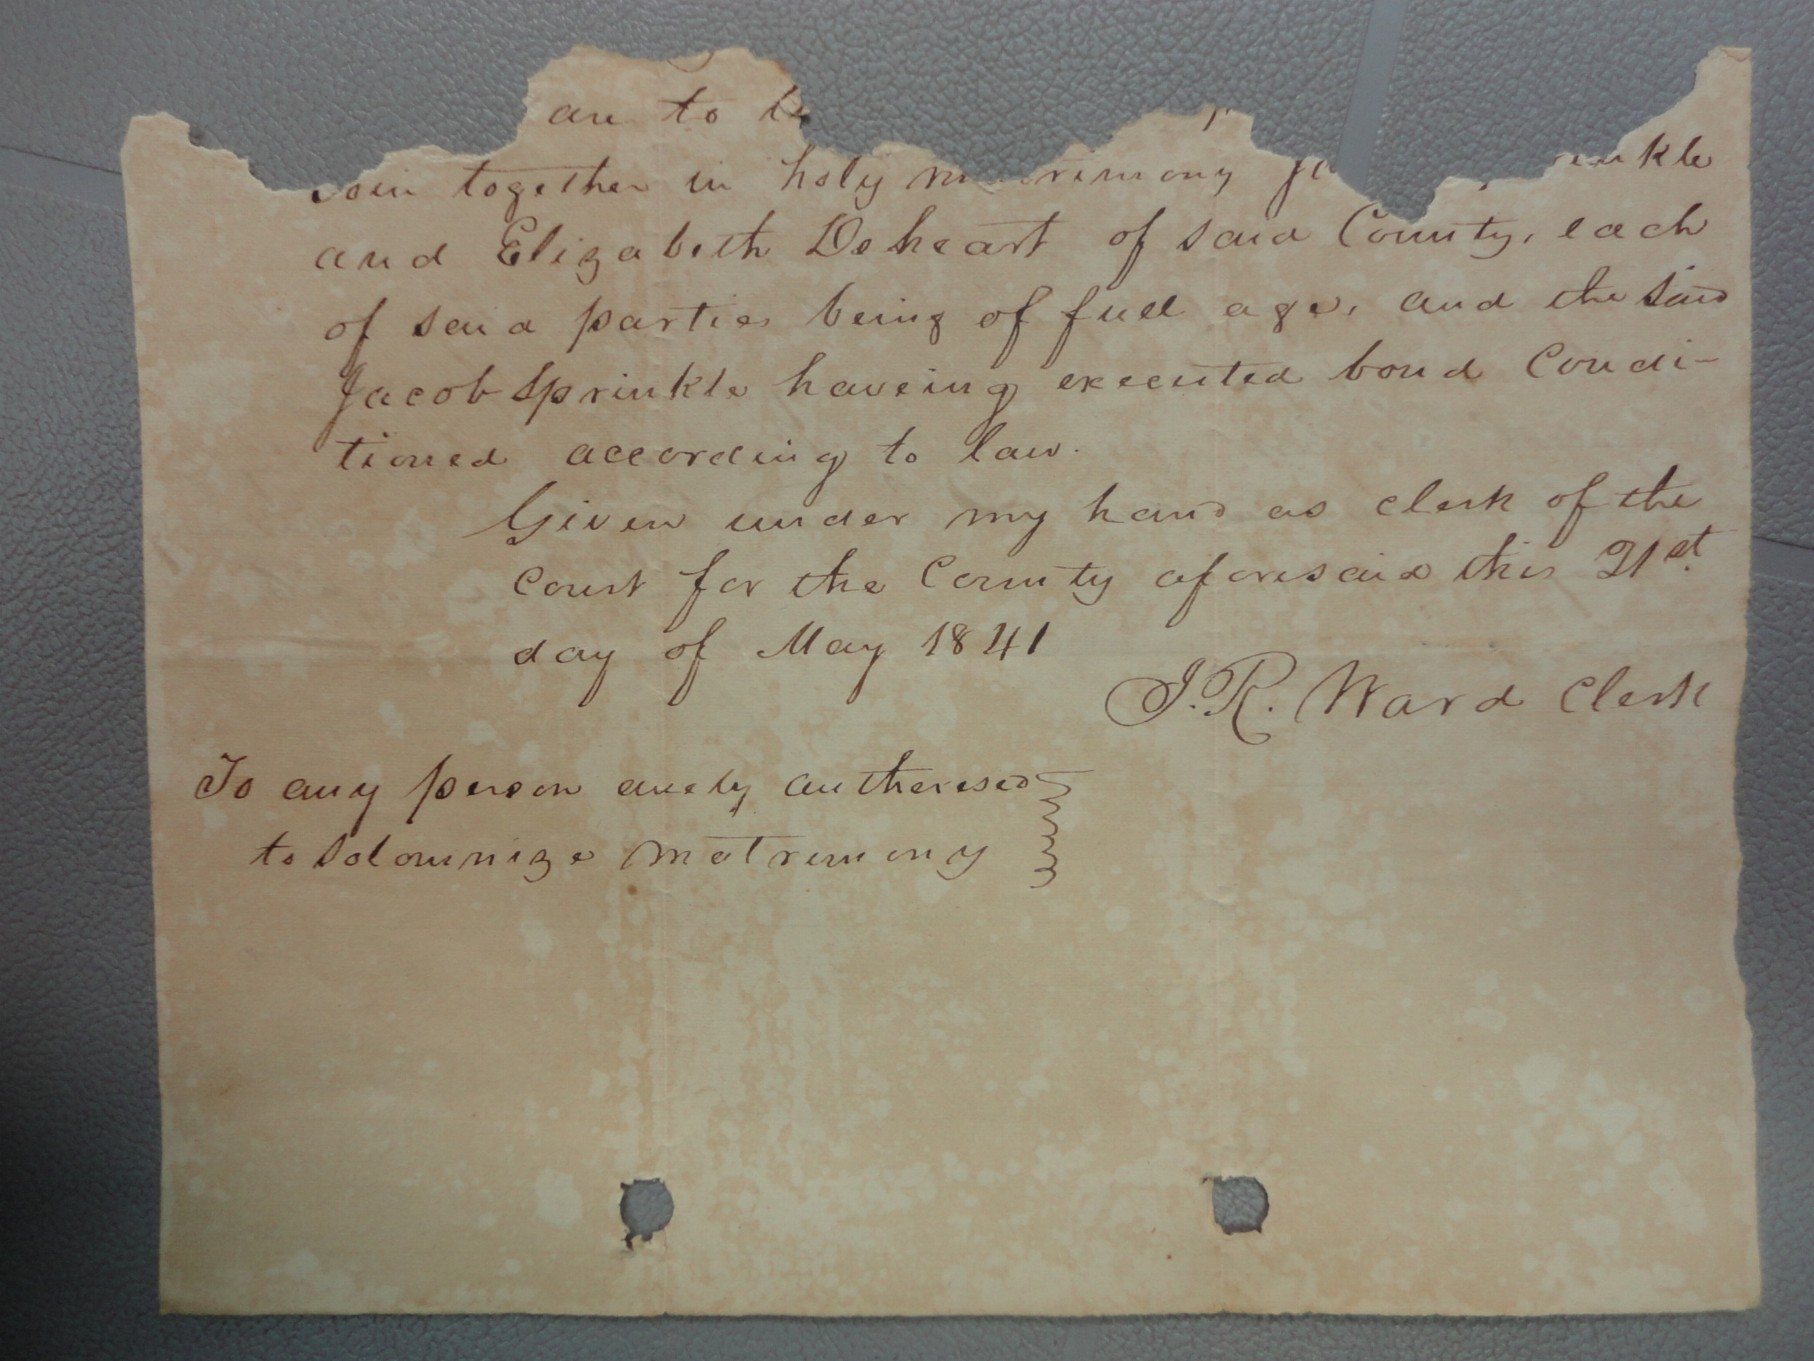 are to
Join together in holy matrimony
and Elizabeth Deheart of said County, each
of said parties being of full age, and the said
Jacob Sprinkle haveing executed bond Condi-
tioned according to law.
Given under my hand as clerk of the
Court for the County aforesaid this 21st
day of May 1841
J. R. Ward Clerk
To any person duely autherised
to Solomnize matrimony